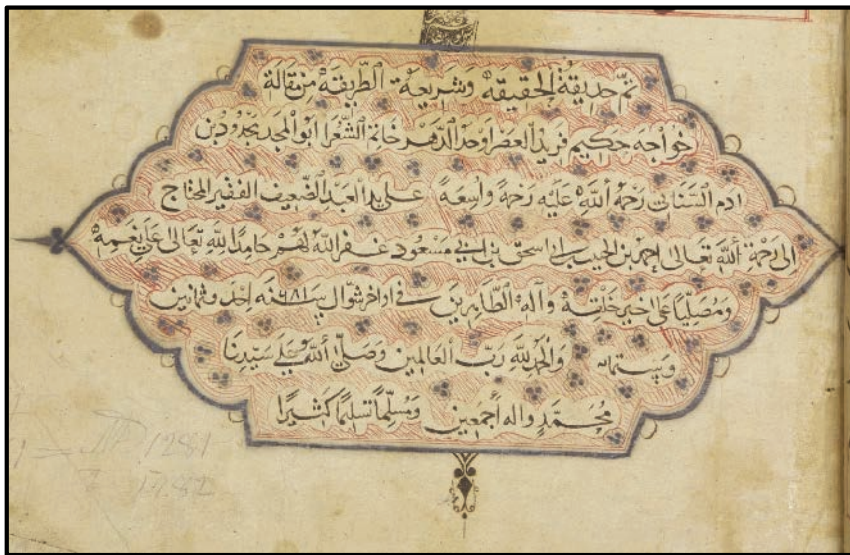 تم حديقة الحقيقة وشريعة الطريقة من مقالة
خواجه حكيم فريد العصر اوحد الدهر خاتم الشعرا ابو المجد مجدود بن
ادم السنائى رحمة الله عليه رحمة واسعة على يد العبد الضعيف الفقير المحتاج
الى رحمة الله تعالى احمد بن اسحق بن ابى مسعود غفر الله لهم حامدا لله تعالى على نعمه
ومصليا على خير خلقه وآله الطاهرين فى اواخر شوال سنه ٦٨١ احدى وثمانين
وستمائه والحمد لله رب العالمين وصلى الله على سيدنا
محمد واله أجمعين ومسلما تسليما كثيرا
1281